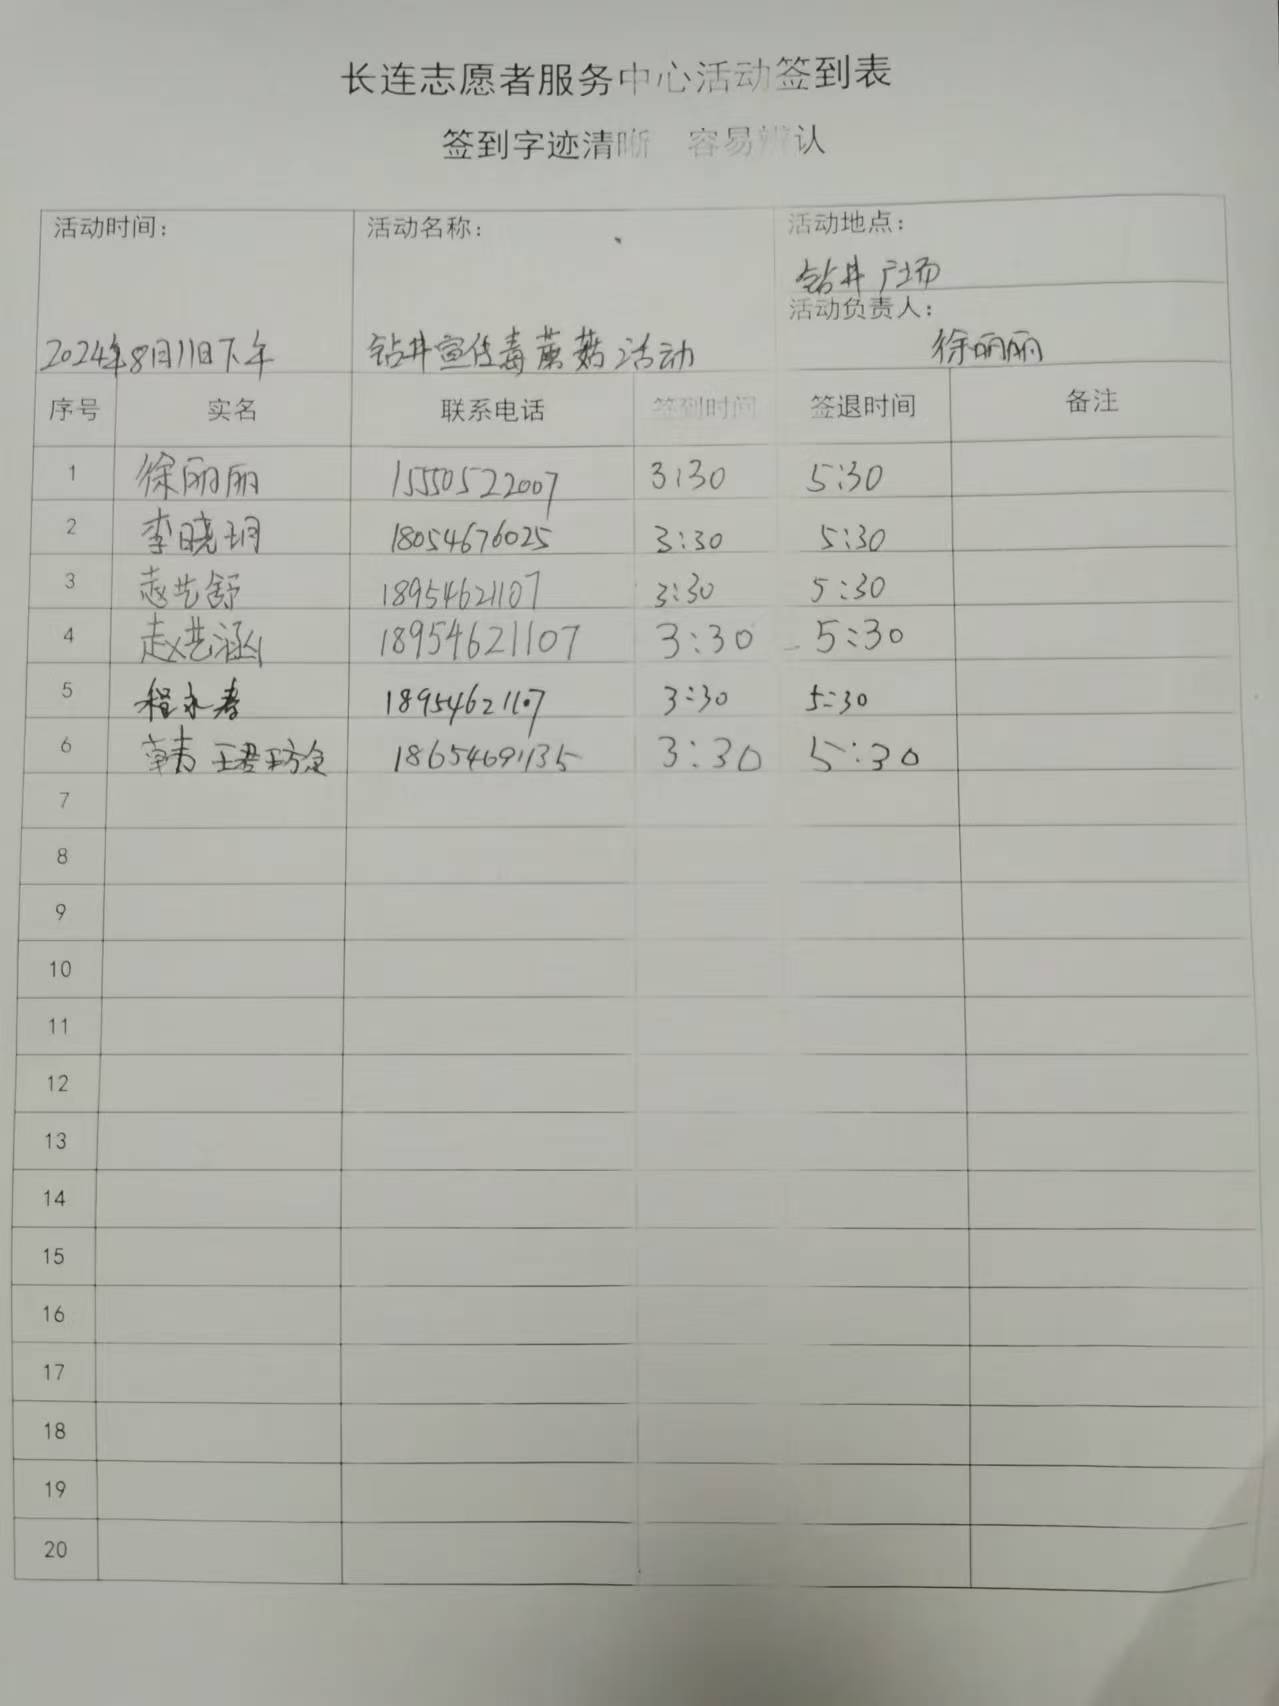 长连志愿者服务中心活动签到表
签到字迹清晰 容易辨认
活动时间： 活动名称： 活动地点：
钻井广场
活动负责人：
2024年8月11日下午 钻井宣传毒蘑菇活动 徐丽丽
序号 实名 联系电话 签到时间 签退时间 备注
1 徐丽丽 15550522007 3:30 5:30
2 李晓玥 18054676025 3:30 5:30
3 赵艺舒 18954621107 3:30 5:30
4 赵艺涵 18954621107 3:30 5:30
5 程永春 18954621107 3:30 5:30
6 18654691135 3:30 5:30
7
8
9
10
11
12
13
14
15
16
17
18
19
20